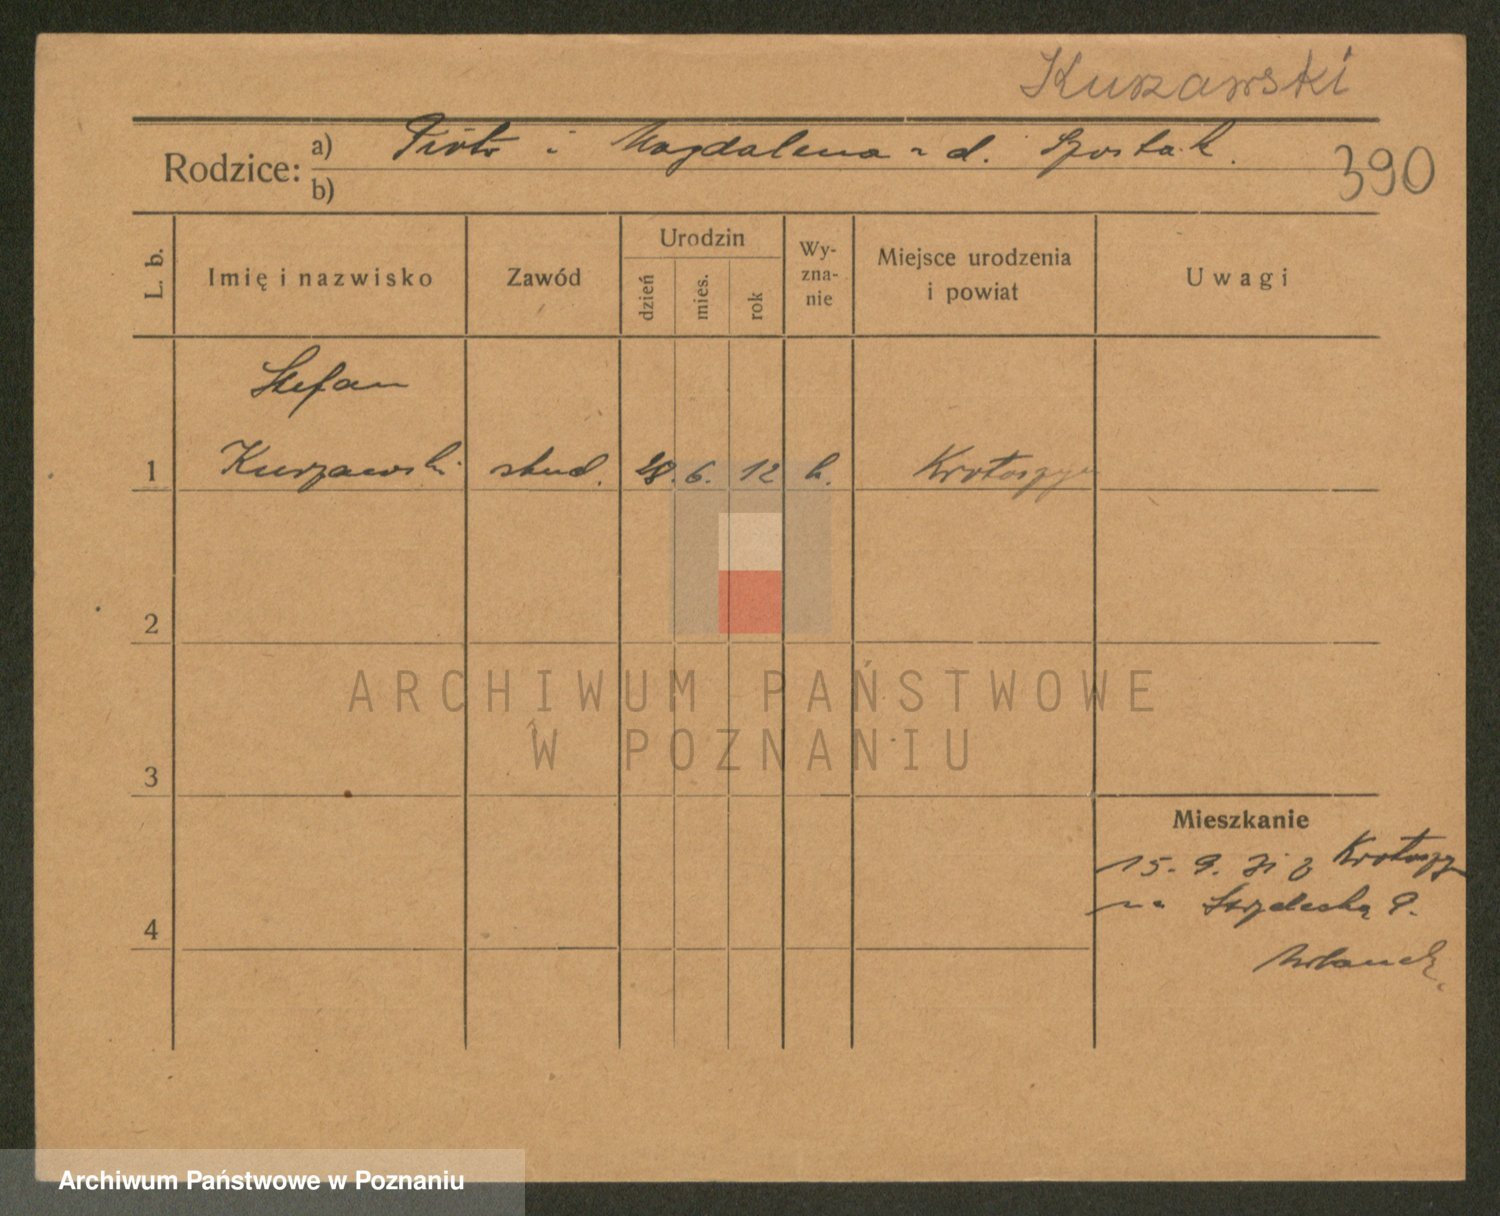 Kurzawski
Rodzice: a) Piotr i Magdalena z d. Szostak.
390
b)
L. b.
Imię i nazwisko
Zawód
Urodzin
dzień
mies.
rok
Wy-
zna-
nie
Miejsce urodzenia
i powiat
Uwagi
Stefan
1 Kurzawski stud. 28. 6. 12 k. Krotoszyn
2
ARCHIWUM PAŃSTWOWE
W POZNANIU
3
Mieszkanie
15. 9. 31 z Krotoszyn
na Strzelecką 9.
4
Archiwum Państwowe w Poznaniu